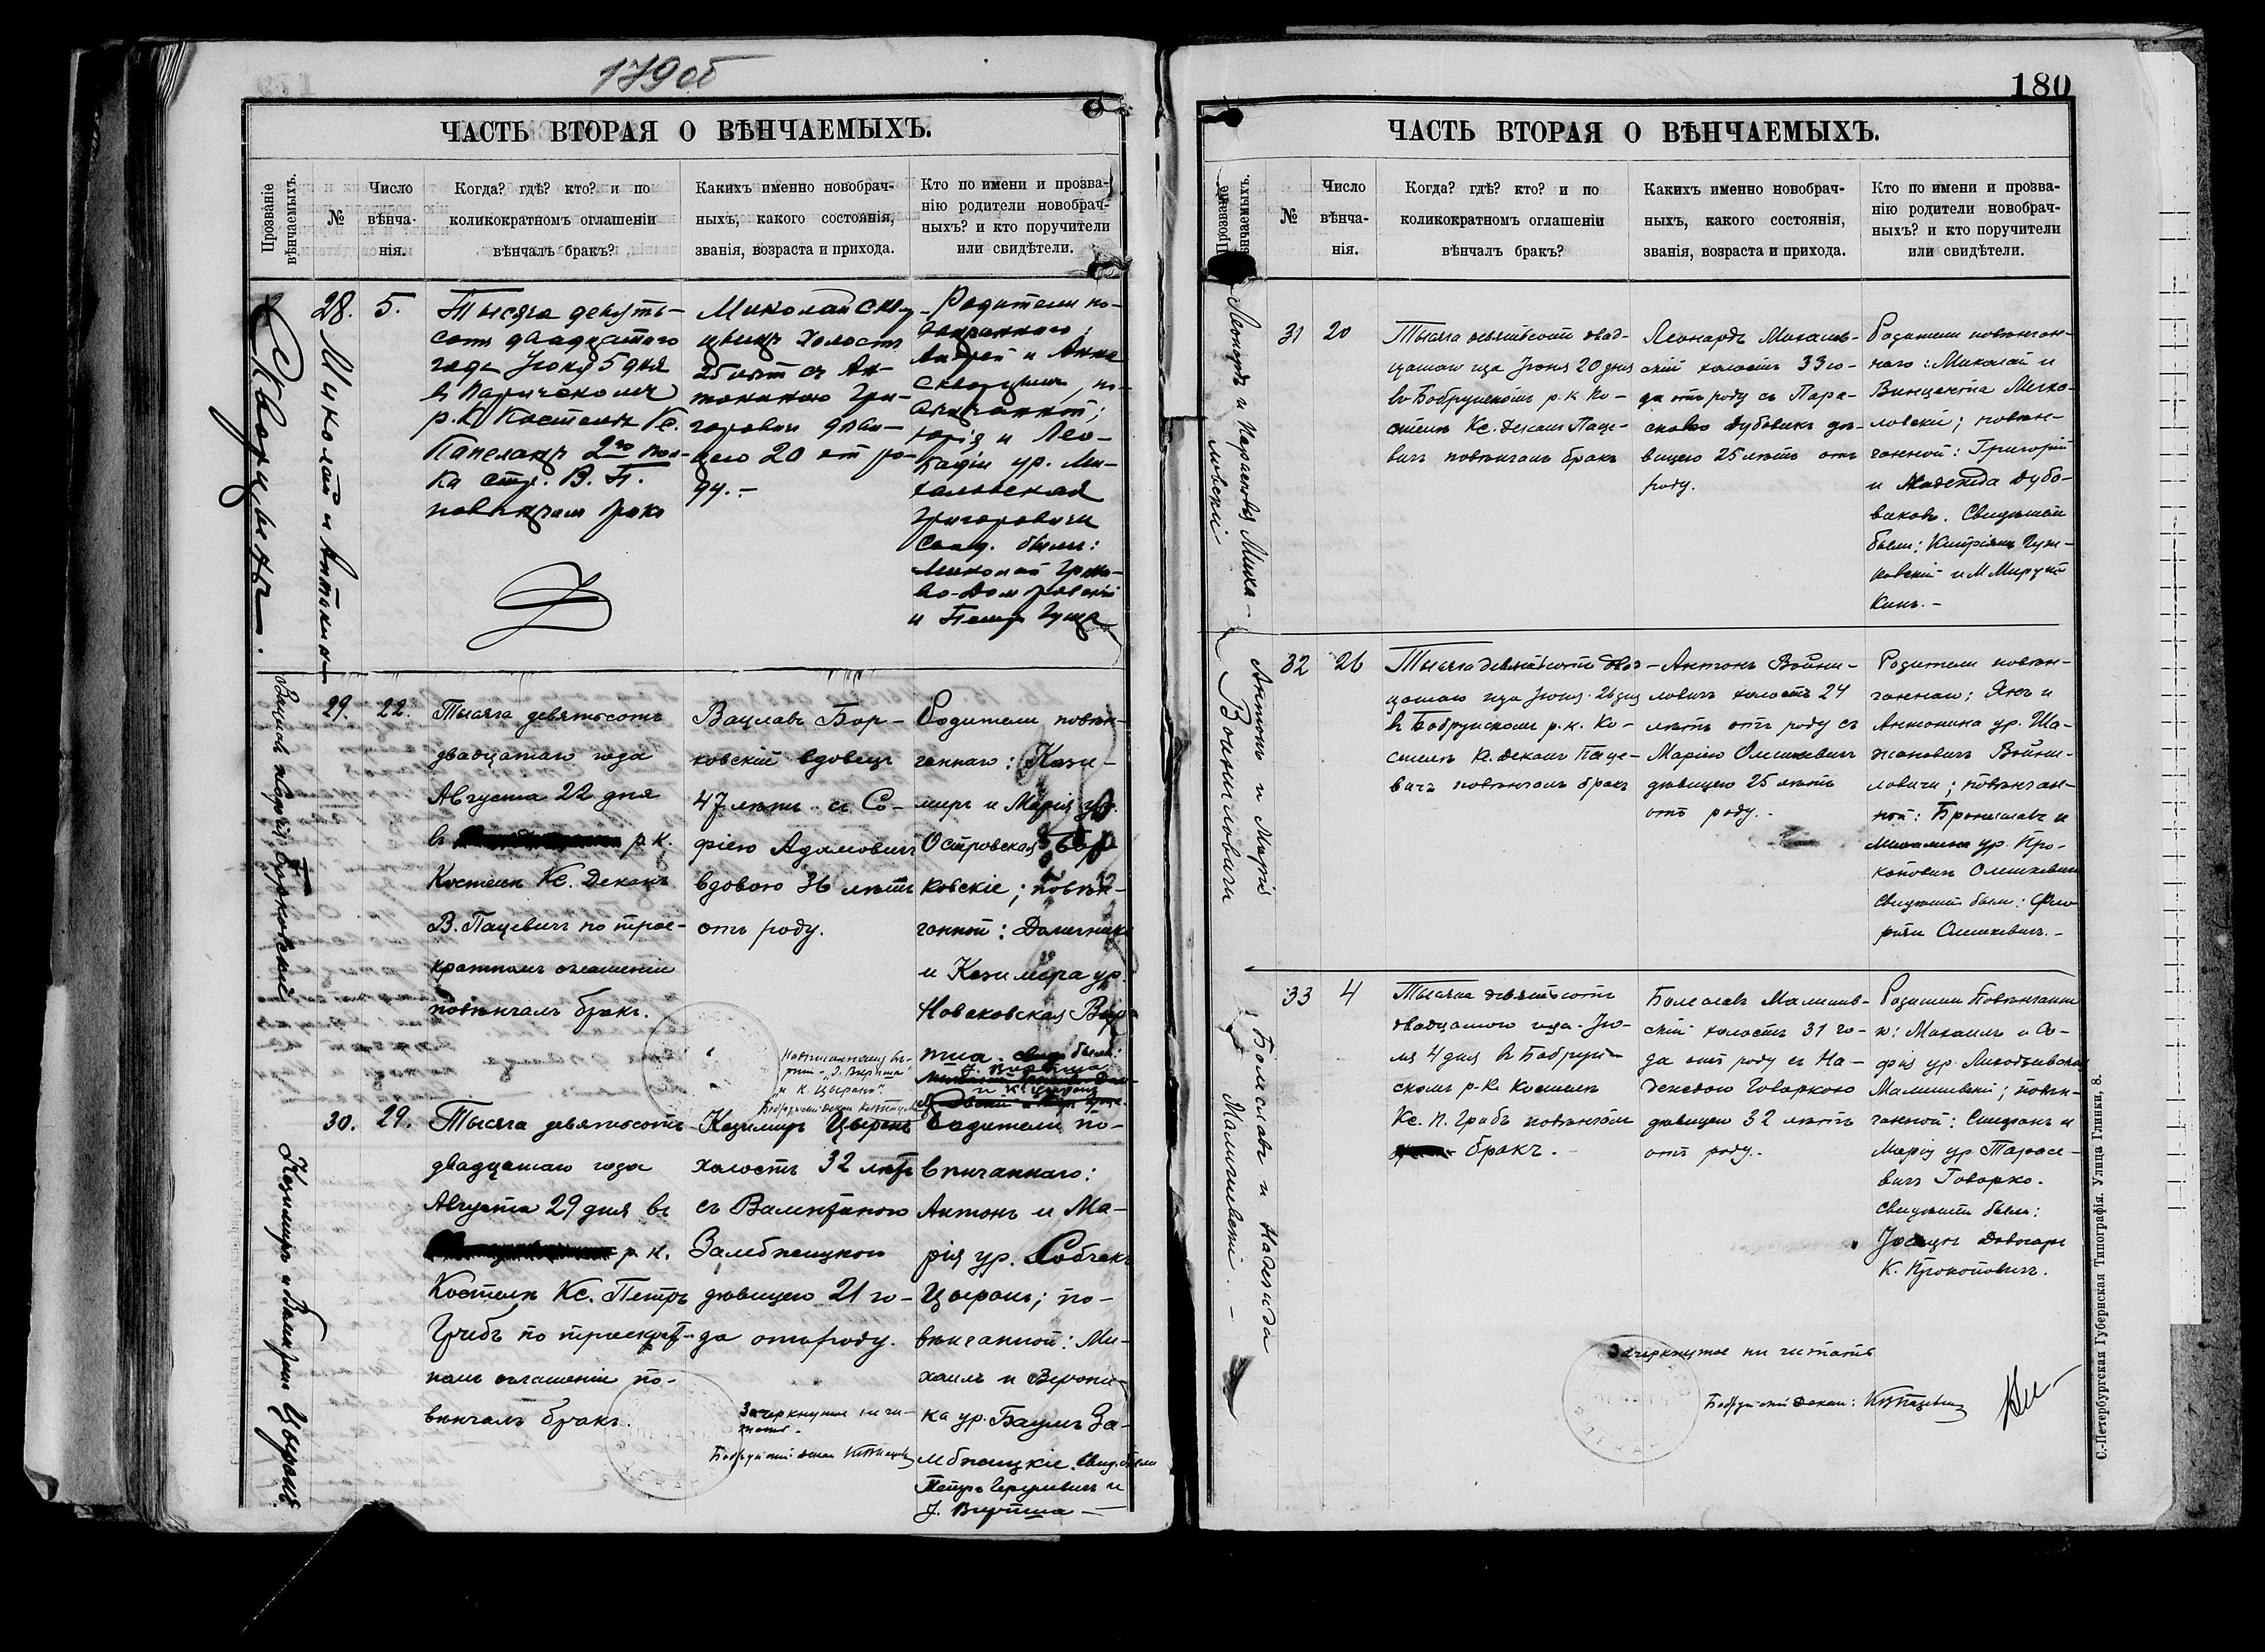 179 об
ЧАСТЬ ВТОРАЯ О ВѢНЧАЕМЫХЪ.
Прозваніе
вѣнчаемыхъ.
№
Число
вѣнча-
нія.
Когда? гдѣ? кто? и по
коликократномъ оглашеніи
вѣнчалъ бракъ?
Какихъ именно новобрач-
ныхъ, какого состоянія,
званія, возраста и прихода.
Кто по имени и прозва-
нію родители новобрач-
ныхъ? и кто поручители
или свидѣтели.
Скворцыны.
Миколай и Антонина
28.
5.
Тысяча девять-
сотъ двадцатого
года 5 дня
в Паричском
р.к. Костеле Кс.
Капеланъ 2го пол-
ка стр. В. П.
повѣнчал брак
Миколай Скво-
рцынъ холостъ
25 лѣт съ Ан-
тониною Гри-
горович дѣви-
цею 20 от ро-
ду. –
Родители по-
вѣнчанного:
Андрей и Анна
Скворцыны, по-
вѣнчанной;
Юрія и Лео-
кадіи ур. Ми-
хальвская
Григоровичи
Свид. были:
Миколай
и Петр Гуща
Вацлав и Софія Борковскіе
29.
22.
Тысяча девятьсотъ
двадцатаго года
Августа 22 дня
в р.к.
Костеле Кс. Деканъ
В. Пацевич по трое-
кратномъ оглашеніи
повѣнчалъ бракъ.
Вацлавъ Бор-
ковскій вдовецъ
47 лѣтъ съ Со-
фіею Адамович
вдовою 36 лѣтъ
отъ роду.
Родители повѣн-
чаннаго: Кази-
миръ и Марія ур.
Островская Бор-
ковскіе; повѣн-
чанной: Доминика
и Казимера ур.
Новаковская
свид. были:
и К. Цыранъ
Казимиръ и Валентина Цыранъ.
30.
29.
Тысяча девятьсотъ
двадцатаго года
Августа 29 дня въ
р.к.
Костеле Кс. Петръ
Грабъ по троекрат-
номъ оглашеніи по-
вѣнчалъ бракъ.
Казимиръ Цыранъ
холостъ 32 лѣтъ
съ Валентиною
Замбжицкою
дѣвицею 21 го-
да отъ роду.
Зачеркнутое не чи-
тать.
Бобруйскій декан
Родители по-
вѣнчаннаго:
Антонъ и Ма-
рія ур. Собчакъ
Цыранъ; по-
вѣнчанной: Ми-
хаилъ и Верони-
ка ур. Баумъ За-
мбжицкіе. Свид. были
Петръ и
180
ЧАСТЬ ВТОРАЯ О ВѢНЧАЕМЫХЪ.
Прозваніе
вѣнчаемыхъ.
№
Число
вѣнча-
нія.
Когда? гдѣ? кто? и по
коликократномъ оглашеніи
вѣнчалъ бракъ?
Какихъ именно новобрач-
ныхъ, какого состоянія,
званія, возраста и прихода.
Кто по имени и прозва-
нію родители новобрач-
ныхъ? и кто поручители
или свидѣтели.
Леонардъ и Параскевія Миха-
ловскіи
31
20
Тысяча девятьсотъ двад-
цатаго года Іюня 20 дня
въ Бобруйскомъ р.к. Ко-
стеле Кс. декан Паце-
вичъ повѣнчалъ бракъ
Леонардъ Михалов-
скій холостъ 33 го-
да отъ роду съ Пара-
скевою Дубовикъ дѣ-
вицею 25 лѣтъ отъ
роду.
Родители повѣнчан-
наго: Миколай и
Винцента Миха-
ловскіи; повѣн-
чанной: Григорій
и Надежда Дубо-
виковъ. Свидѣтели
были:
Антонъ и Марія
Войниловичи
32
26
Тысяча девятьсотъ двад-
цатаго года Іюня 26 дня
въ Бобруйскомъ р.к. Ко-
стелѣ Кс. декан Паце-
вичъ повѣнчалъ бракъ
Антонъ Войни-
ловичъ холостъ 24
лѣтъ отъ роду съ
Маріею Олешкевич
дѣвицею 25 лѣтъ
отъ роду. -
Родители повѣн-
чаннаго; Янъ и
Антонина ур.
Войни-
ловичи; повѣнчан-
ной: Брониславъ и
Михалина ур. Про-
коповичъ Олешкевичи
Свидѣтели были:
Олешкевичъ. –
Болеславъ и Надежда
Малишевскі. –
33
4
Тысяча девятьсотъ
двадцатаго года Ію-
ля 4 дня въ Бобруй-
скомъ р-к. Костеле
Кс. П. Грабъ повѣнчалъ
бракъ. -
Болеславъ Малишев-
скій холостъ 31 го-
да отъ роду съ На-
деждою Говоркою
дѣвицею 32 лѣтъ
отъ роду. -
Родители Повѣнчанна-
го: Михаилъ и Со-
фія ур.
Малишевскі; повѣн-
чанной: Стефанъ и
Марія ур Тарасе-
вичъ Говорко.
Свидѣтели были:
К. Прокоповичъ.
Зачеркнутое не читать
Бобруйскій Декан:
С.-Петербургская Губернская Типографія. Улица Глинки, 8.